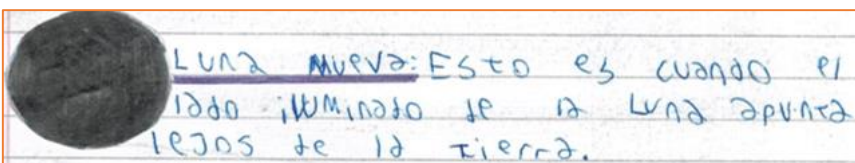 Luna nueva: Esto es cuando el
lado iluminado de la Luna apunta
lejos de la tierra.